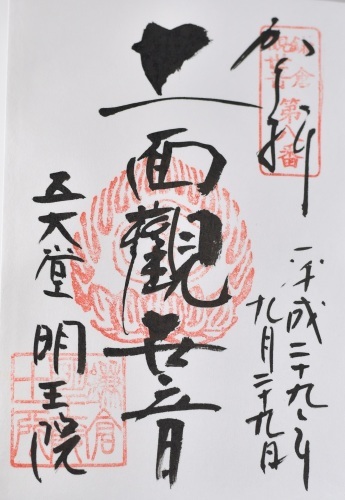 奉拝
鎌倉
観世音
第八番
十一面観世音
五大堂
明王院
平成二十九年
九月二十九日